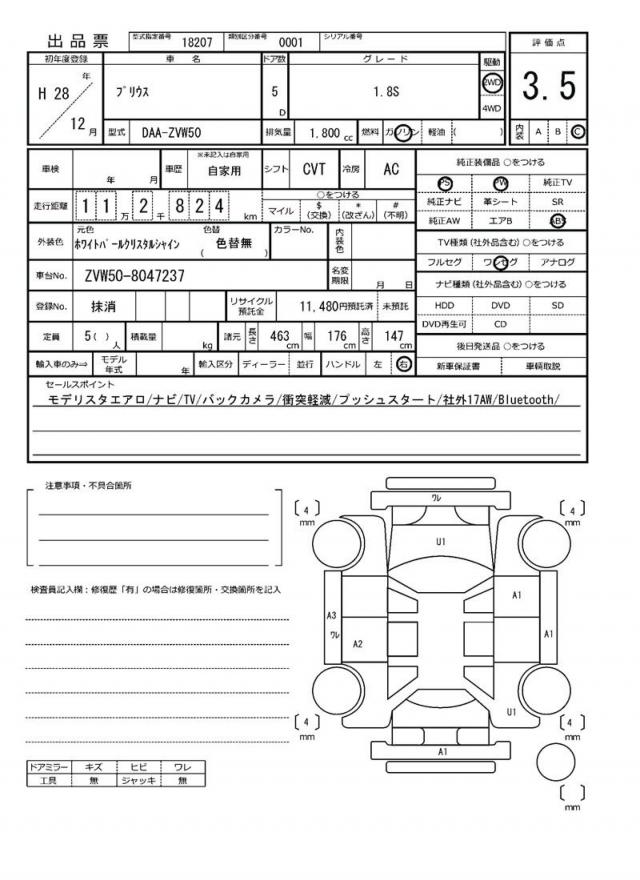 出品票 型式指定番号 18207 類別区分番号 0001 シリアル番号
評価点
3.5
内装 A B C
初年度登録 車名 ドア数 グレード 駆動
H 28 年 12 月
プリウス 5 D 1.8S 2WD
4WD
型式 DAA-ZVW50 排気量 1,800 cc 燃料 ガソリン 軽油 ( )
車検 年 月 車歴 ※未記入は自家用 自家用 シフト CVT 冷房 AC
走行距離 1 1 万 2 千 8 2 4 km
○をつける
マイル $(交換) *(改ざん) #(不明)
外装色 元色 ホワイトパールクリスタルシャイン 色替 ( 色替無 ) カラーNo. 内装色
車台No. ZVW50-8047237 名変期限 月 日
登録No. 抹消 リサイクル預託金 11,480円預託済 未預託
定員 5 ( ) 人 積載量 kg 諸元 長さ 463 cm 幅 176 cm 高さ 147 cm
輸入車のみ⇒ モデル年式 年 輸入区分 ディーラー 並行 ハンドル 左 右
純正装備品 ○をつける
PS PW 純正TV
純正ナビ 革シート SR
純正AW エアB ABS
TV種類(社外品含む)○をつける
フルセグ ワンセグ アナログ
ナビ種類(社外品含む)○をつける
HDD DVD SD
DVD再生可 CD
後日発送品 ○をつける
新車保証書 車輌取説
セールスポイント
モデリスタエアロ/ナビ/TV/バックカメラ/衝突軽減/プッシュスタート/社外17AW/Bluetooth/
注意事項・不具合箇所
検査員記入欄:修復歴「有」の場合は修復箇所・交換箇所を記入
ドアミラー キズ ヒビ ワレ
工具 無 ジャッキ 無
ワレ
[ 4 ] mm
[ 4 ] mm
U1
A1
A3
ワレ
A2
A1
U1
[ 4 ] mm
[ 4 ] mm
A1
[ ] mm